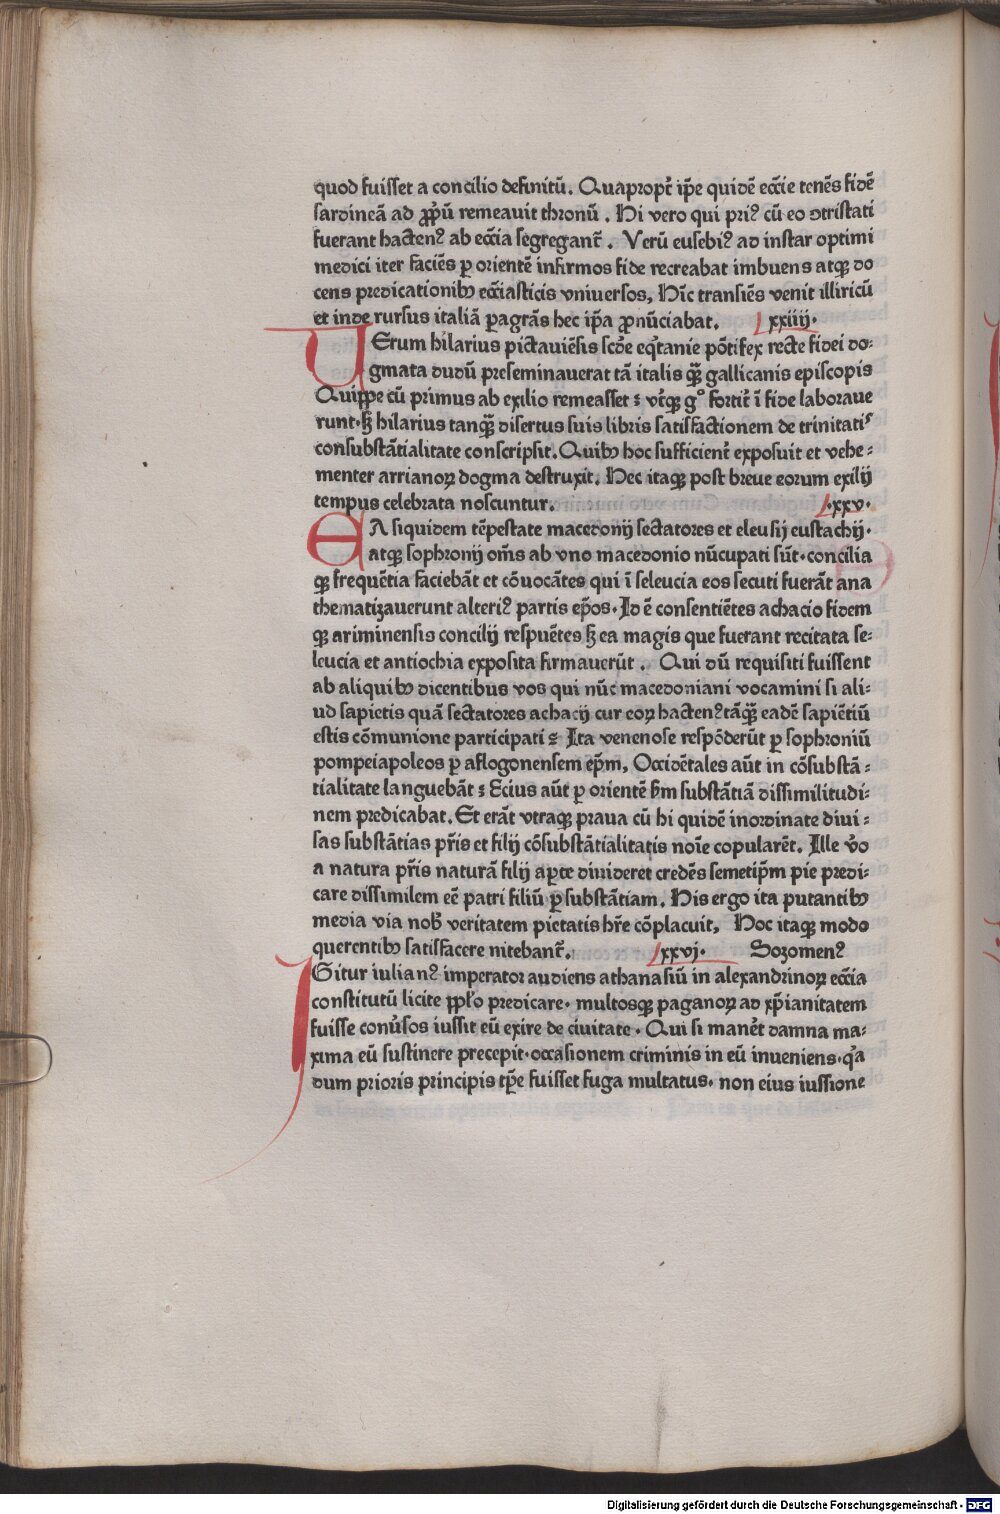 quod fuisset a concilio definitū. Quaproptˀ ip̄e quidē ecc̄ie tenēs fidē
sardineā ad ꝓpͥū remeauit thronū. Hi vero qui priꝰ cū eo ↄtristati
fuerant hactenꝰ ab ecc̄ia segregantˀ. Verū eusebiꝰ ad instar optimi
medici iter faciēs ꝑ orientē infirmos fide recreabat imbuens atqꝫ do
cens predicationibꝰ ecc̄iasticis vniuersos, Hīc transiēs venit illiricū
et inde rursus italiā ꝑagrās hec ip̄a ꝓnūciabat. xxiiij.
UErum hilarius pictauiēsis scd̄e eq̄tanie pōtifex recte fidei do:
gmata dudū preseminauerat tā italis qꝫ̄ gallicanis episcopis
Quippe cū primus ab exilio remeasset : vtˀqꝫ g° fortitˀ ī fide laboraue
runt. sꝫ hilarius tanqꝫ̄ disertus suis libris satisfactionem de trinitatiˢ
consubstātialitate conscripsit. Quibꝰ hoc sufficientˀ exposuit et vehe:
menter arrianoꝝ dogma destruxit. Hec itaqꝫ post breue eorum exilij
tempus celebrata noscuntur. .xxv.
EA siquidem tēpestate macedonij sectatores et eleusij eustachij.
atqꝫ sophronij om̄s ab vno macedonio nūcupati sūt. concilia
qꝫ frequētia faciebāt et cōuocātes qui ī seleucia eos secuti fuerāt ana
thematizauerunt alteriꝰ partis ep̄os. Id ē consentiētes achacio fidem
qꝫ ariminensis concilij respuētes sꝫ ea magis que fuerant recitata se:
leucia et antiochia exposita firmauerūt. Qui dū requisiti fuissent
ab aliquibꝰ dicentibus vos qui nūc macedoniani vocamini si ali:
ud sapietis quā sectatores achacij cur eoꝝ hactenꝰ tāqꝫ̄ eadē sapiētiū
estis cōmunione participati : Ita venenose respōderūt ꝑ sophroniū
pompeiapoleos ꝑ aflogonensem ep̄m, Occidētales aūt in cōsubstā:
tialitate languebāt : Ecius aūt ꝑ orientē sm̄ substātiā dissimilitudi:
nem predicabat. Et erāt vtraqꝫ praua cū hi quidē inordinate diui:
sas substātias pr̄is et filij cōsubstātialitatis noīe copularēt. Ille v̊o
a natura pr̄is naturā filij aꝑte diuideret credēs semetip̄m pie predi:
care dissimilem eē patri filiū ꝑ substātiam. His ergo ita putantibꝰ
media via nob̄ veritatem pietatis hr̄e cōplacuit, Hoc itaqꝫ modo
querentibꝰ satisfacere nitebantˀ. xxvj. Sozomenꝰ
IGitur iulianꝰ imperator audiens athanasiū in alexandrinoꝝ ecc̄ia
constitutū licite pp̄lo predicare. multosqꝫ paganoꝝ ad xp̄ianitatem
fuisse conuˀsos iussit eū exire de ciuitate. Qui si manētˀ damna ma:
xima eū sustinere precepit. occasionem criminis in eū inueniens. qͥa
dum prioris principis tp̄e fuisset fuga multatus. non eius iussione
Digitalisierung gefördert durch die Deutsche Forschungsgemeinschaft - DFG